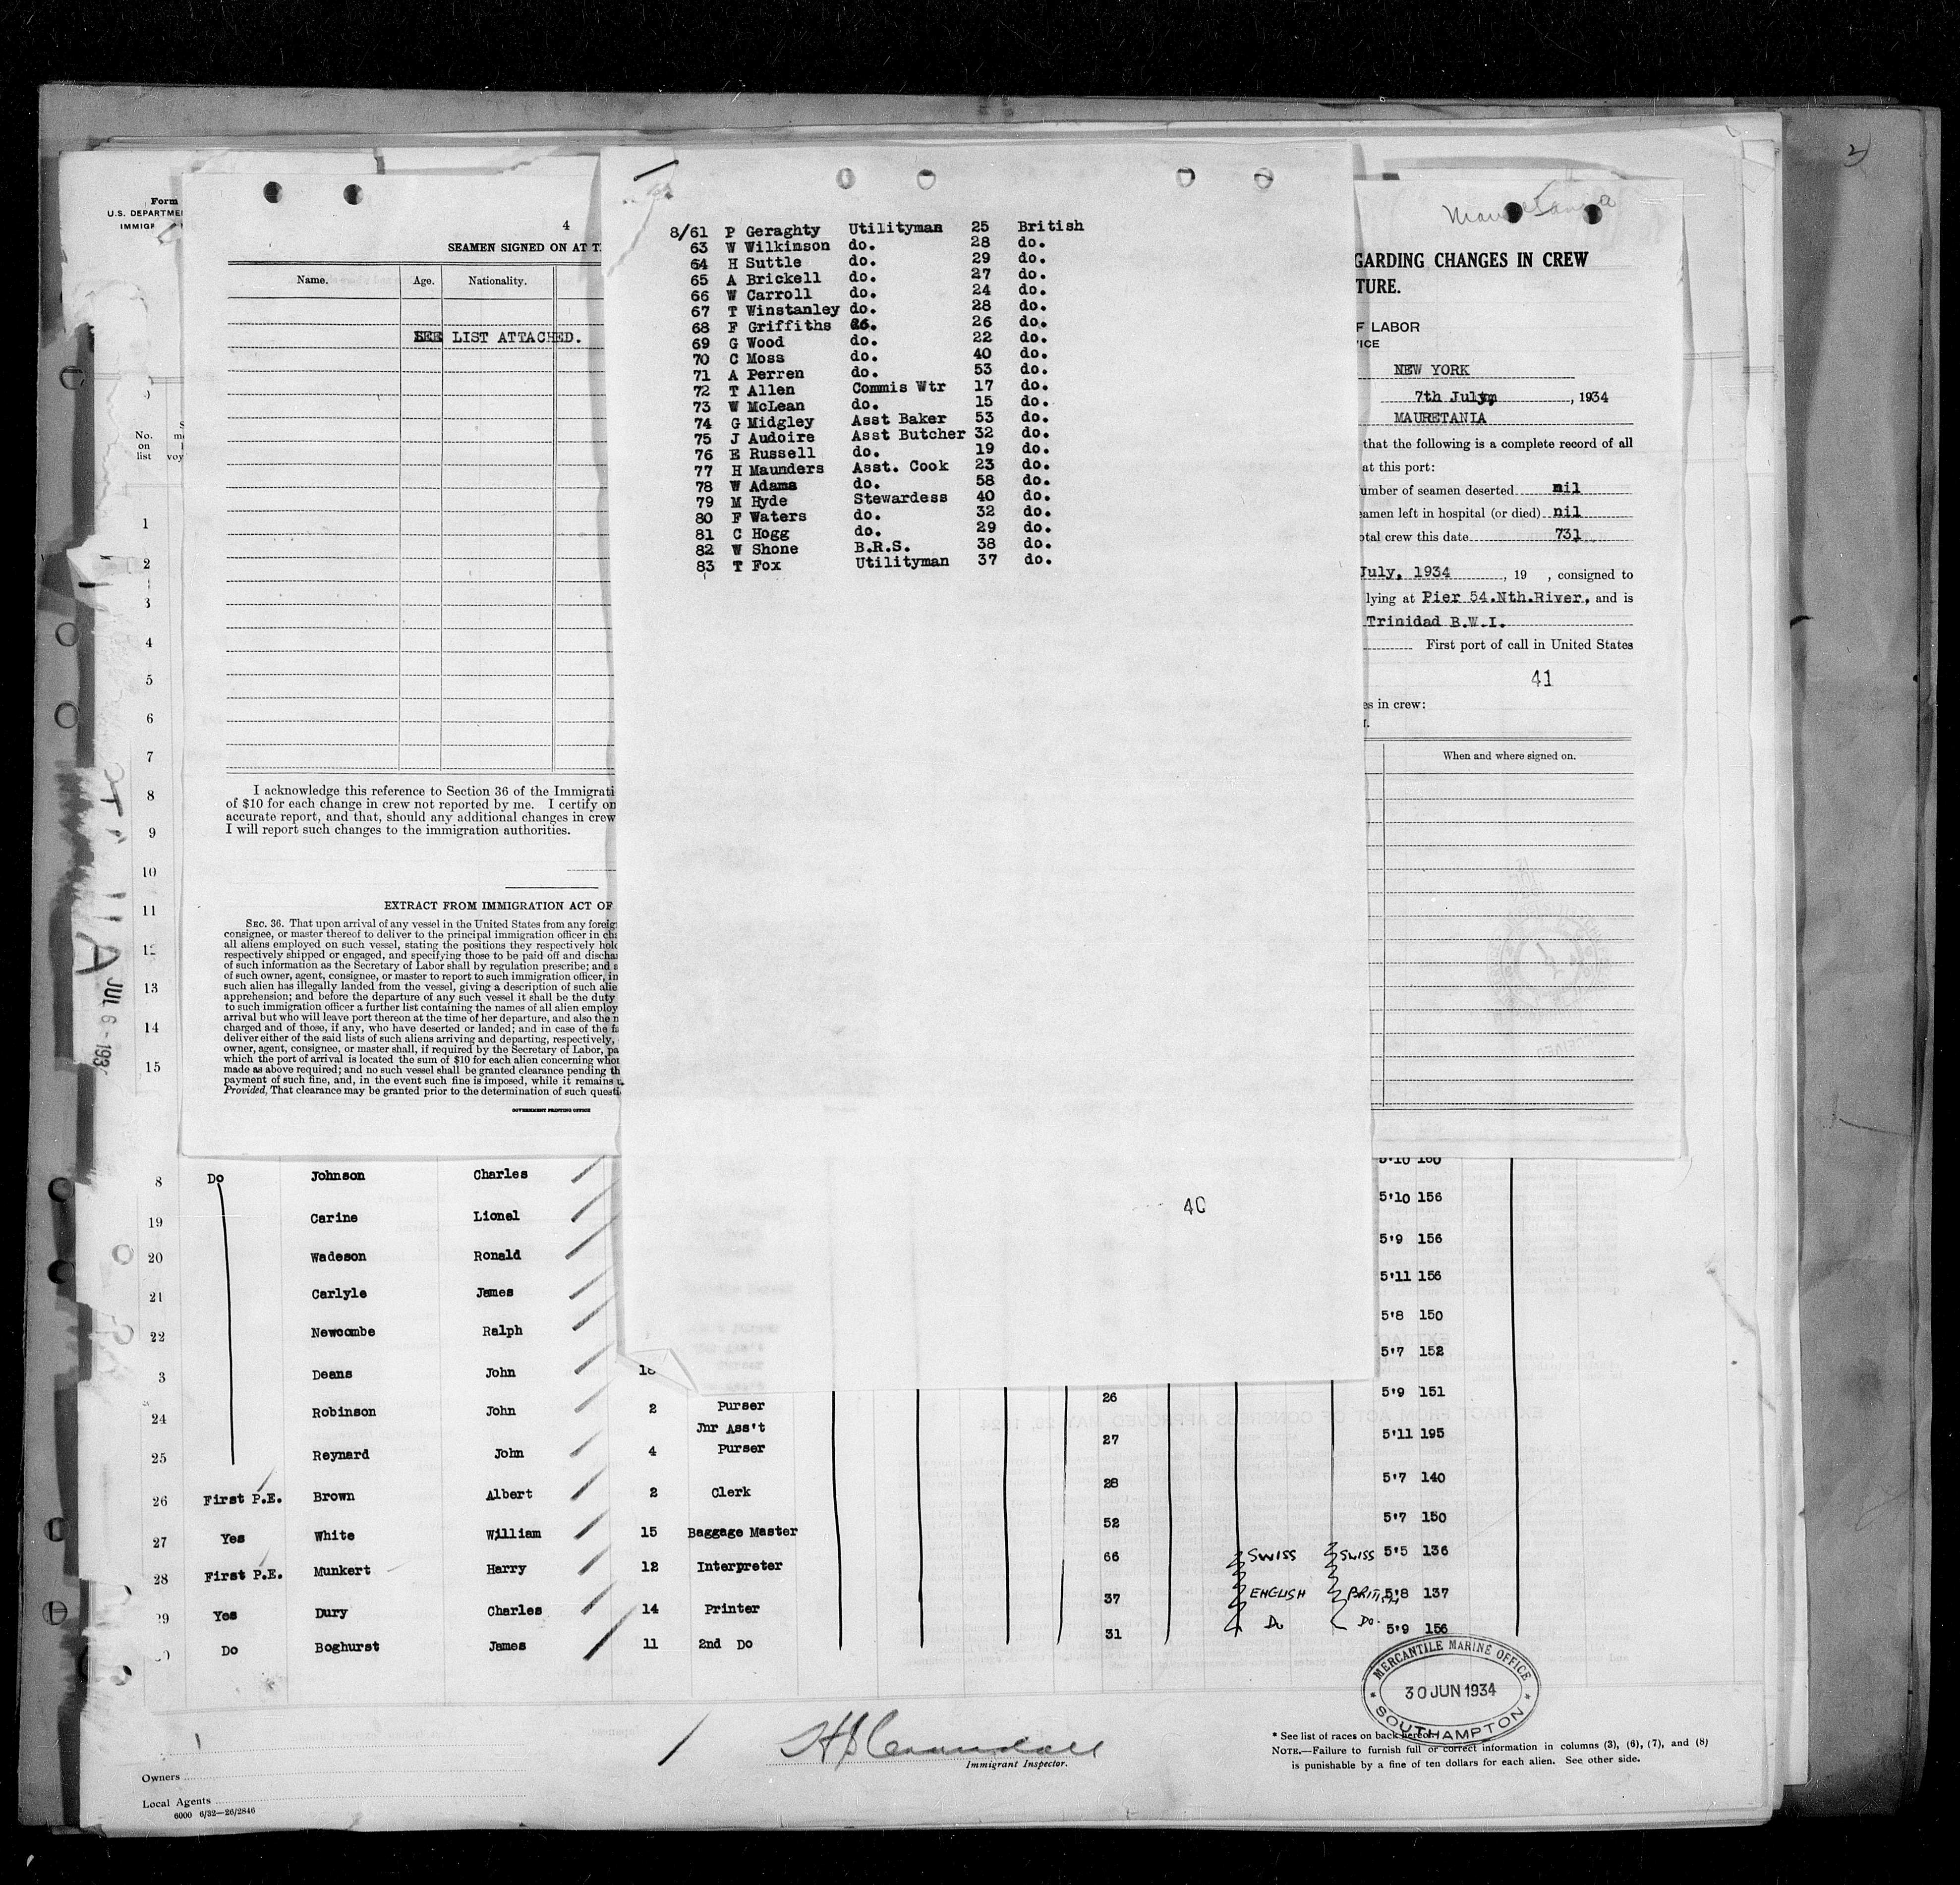 Form
U.S. DEPARTME
IMMIGR
No.
on
list
voy
1
2
3
4
5
6
7
8
9
10
11
13
14
15
JUL 6 - 193
4
SEAMEN SIGNED ON AT T
Name. Age. Nationality.
SEE LIST ATTACHED.
I acknowledge this reference to Section 36 of the Immigrati
of $10 for each change in crew not reported by me. I certify on
accurate report, and that, should any additional changes in crew
I will report such changes to the immigration authorities.
EXTRACT FROM IMMIGRATION ACT OF
SEC. 36. That upon arrival of any vessel in the United States from any foreig
consignee, or master thereof to deliver to the principal immigration officer in cha
all aliens employed on such vessel, stating the positions they respectively hold
respectively shipped or engaged, and specifying those to be paid off and dischar
of such information as the Secretary of Labor shall by regulation prescribe; and a
of such owner, agent, consignee, or master to report to such immigration officer, in
such alien has illegally landed from the vessel, giving a description of such alie
apprehension; and before the departure of any such vessel it shall be the duty
to such immigration officer a further list containing the names of all alien employ
arrival but who will leave port thereon at the time of her departure, and also the n
charged and of those, if any, who have deserted or landed; and in case of the fa
deliver either of the said lists of such aliens arriving and departing, respectively,
owner, agent, consignee, or master shall, if required by the Secretary of Labor, pa
which the port of arrival is located the sum of $10 for each alien concerning whom
made as above required; and no such vessel shall be granted clearance pending th
payment of such fine, and, in the event such fine is imposed, while it remains u
Provided, That clearance may be granted prior to the determination of such questi
GOVERNMENT PRINTING OFFICE
8/61 P Geraghty Utilityman 25 British
63 W Wilkinson do. 28 do.
64 H Suttle do. 29 do.
65 A Brickell do. 27 do.
66 W Carroll do. 24 do.
67 T Winstanley do. 28 do.
68 F Griffiths do. 26 do.
69 G Wood do. 22 do.
70 C Moss do. 40 do.
71 A Perren do. 53 do.
72 T Allen Commis Wtr 17 do.
73 W McLean do. 15 do.
74 G Midgley Asst Baker 53 do.
75 J Audoire Asst Butcher 32 do.
76 E Russell do. 19 do.
77 H Maunders Asst. Cook 23 do.
78 W Adams do. 58 do.
79 M Hyde Stewardess 40 do.
80 F Waters do. 32 do.
81 C Hogg do. 29 do.
82 W Shone B.R.S. 38 do.
83 T Fox Utilityman 37 do.
40
Mauretania
GARDING CHANGES IN CREW
TURE.
F LABOR
ICE
NEW YORK
7th July, , 1934
MAURETANIA
that the following is a complete record of all
at this port:
umber of seamen deserted nil
eamen left in hospital (or died) nil
otal crew this date 731
July, 1934 , 19 , consigned to
lying at Pier 54.Nth.River, and is
Trinidad B.W.I.
First port of call in United States
41
es in crew:
When and where signed on.
5'10 160
8 Do Johnson Charles 5'10 156
19 Carine Lionel 5'9 156
20 Wadeson Ronald 5'11 156
21 Carlyle James 5'8 150
22 Newcombe Ralph 5'7 152
3 Deans John 18 26 5'9 151
24 Robinson John 2 Purser 27 5'11 195
Jnr Ass't
25 Reynard John 4 Purser 28 5'7 140
26 First P.E. Brown Albert 2 Clerk 52 5'7 150
27 Yes White William 15 Baggage Master 66 5'5 136
28 First P.E. Munkert Harry 12 Interpreter 37 SWISS SWISS 5'8 137
29 Yes Dury Charles 14 Printer 31 ENGLISH BRITISH 5'9 156
Do Boghurst James 11 2nd Do Do Do.
MERCANTILE MARINE OFFICE
30 JUN 1934
SOUTHAMPTON
Immigrant Inspector.
* See list of races on back hereof.
NOTE.—Failure to furnish full or correct information in columns (3), (6), (7), and (8)
is punishable by a fine of ten dollars for each alien. See other side.
Owners
Local Agents
6000 6/32—26/2846